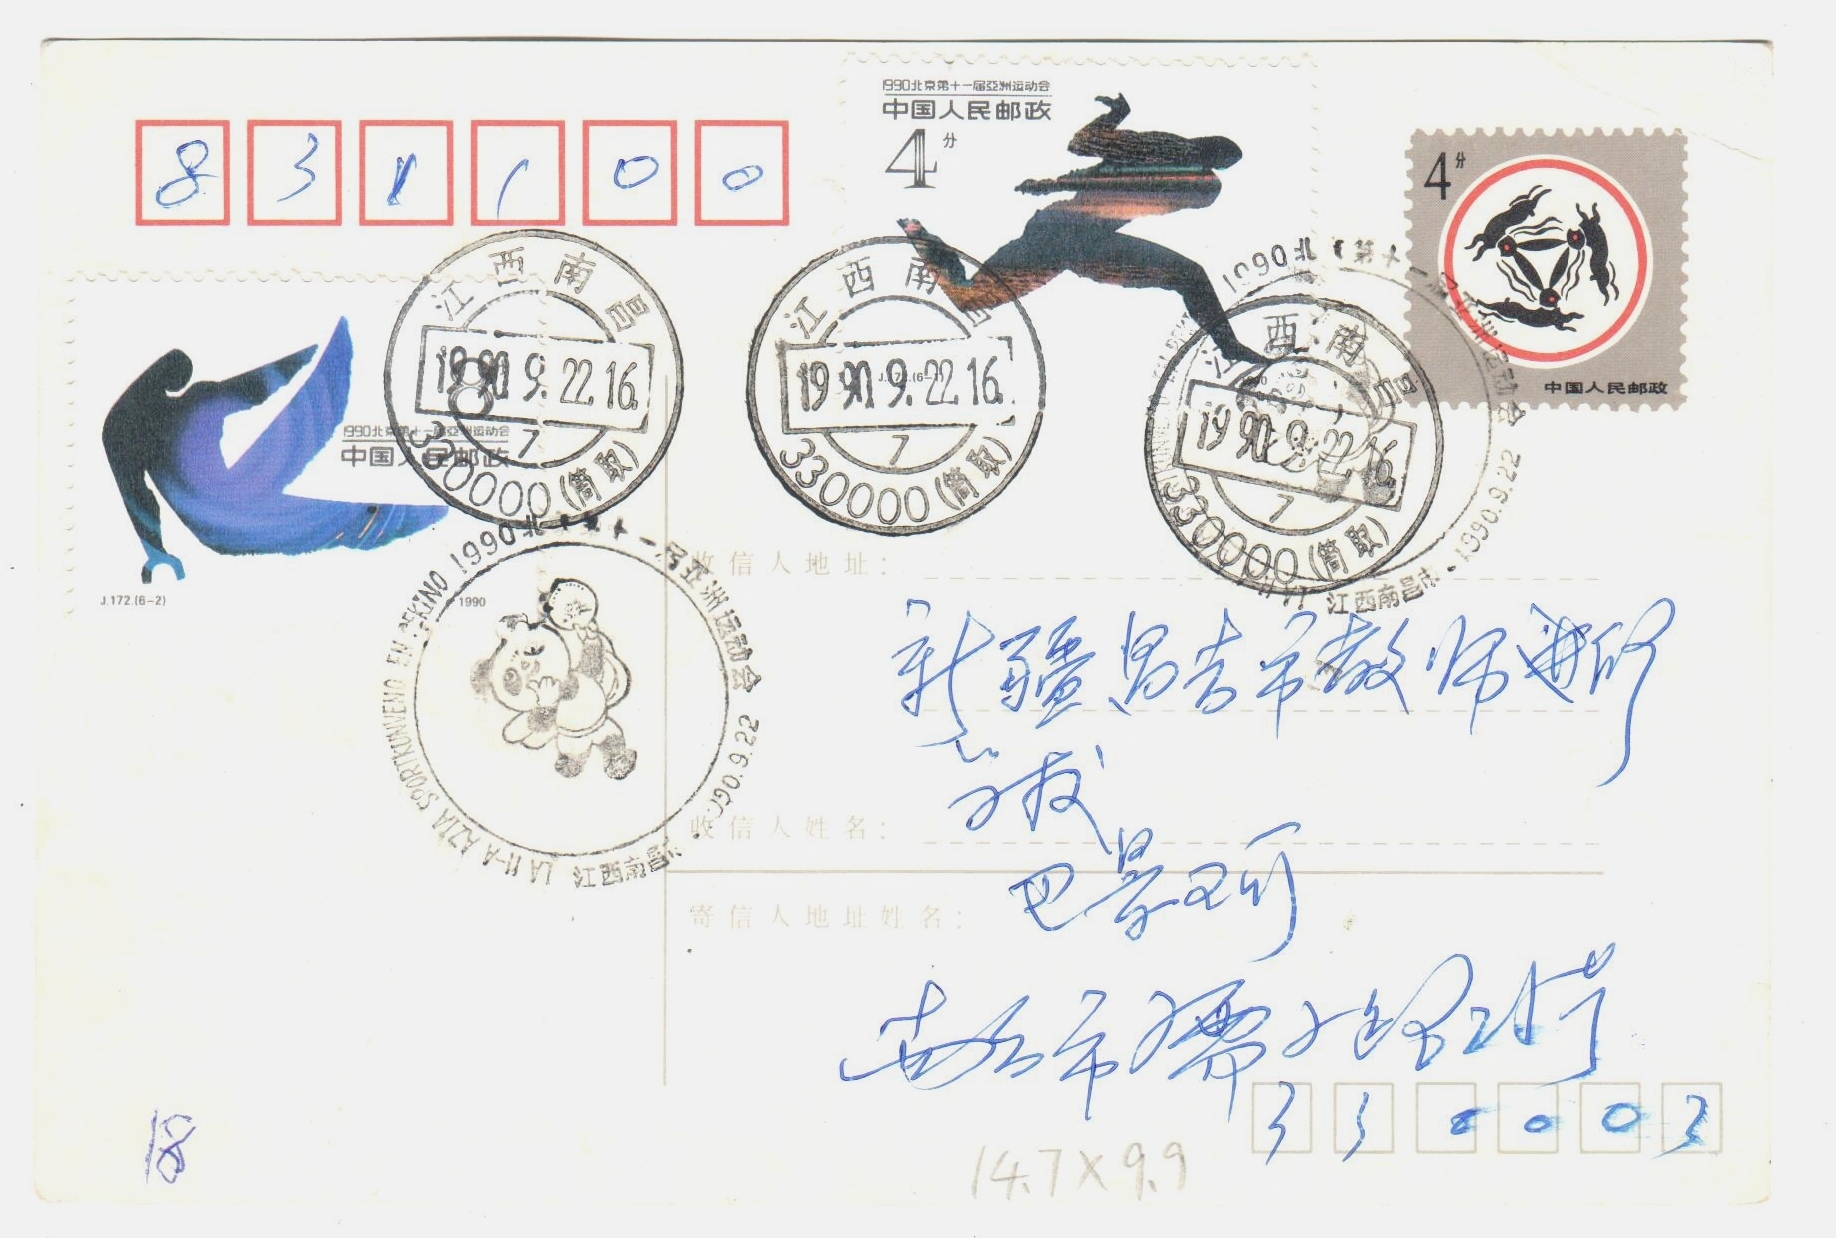 831100
1990北京第十一届亞洲运动会
中国人民邮政
4分
4分
中国人民邮政
江西南昌
1990.9.22.16
7
330000(筒取)
江西南昌
1990.9.22.16
7
330000(筒取)
江西南昌
1990.9.22.16
7
330000(筒取)
8
1990北京第十一届亞洲运动会
中国人民邮政
J.172.(6-2)
1990
J.172.(6-1)
1990北京第十一届亚洲运动会
江西南昌市·1990.9.22
LA 11-A AZIA SPORTKUNVENO EN PEKINO
1990北京第十一届亚洲运动会
江西南昌市·1990.9.22
收信人地址:
新疆昌吉市教师进修
学校
收信人姓名:
巴景
寄信人地址姓名:
330003
18
14.7×9.9